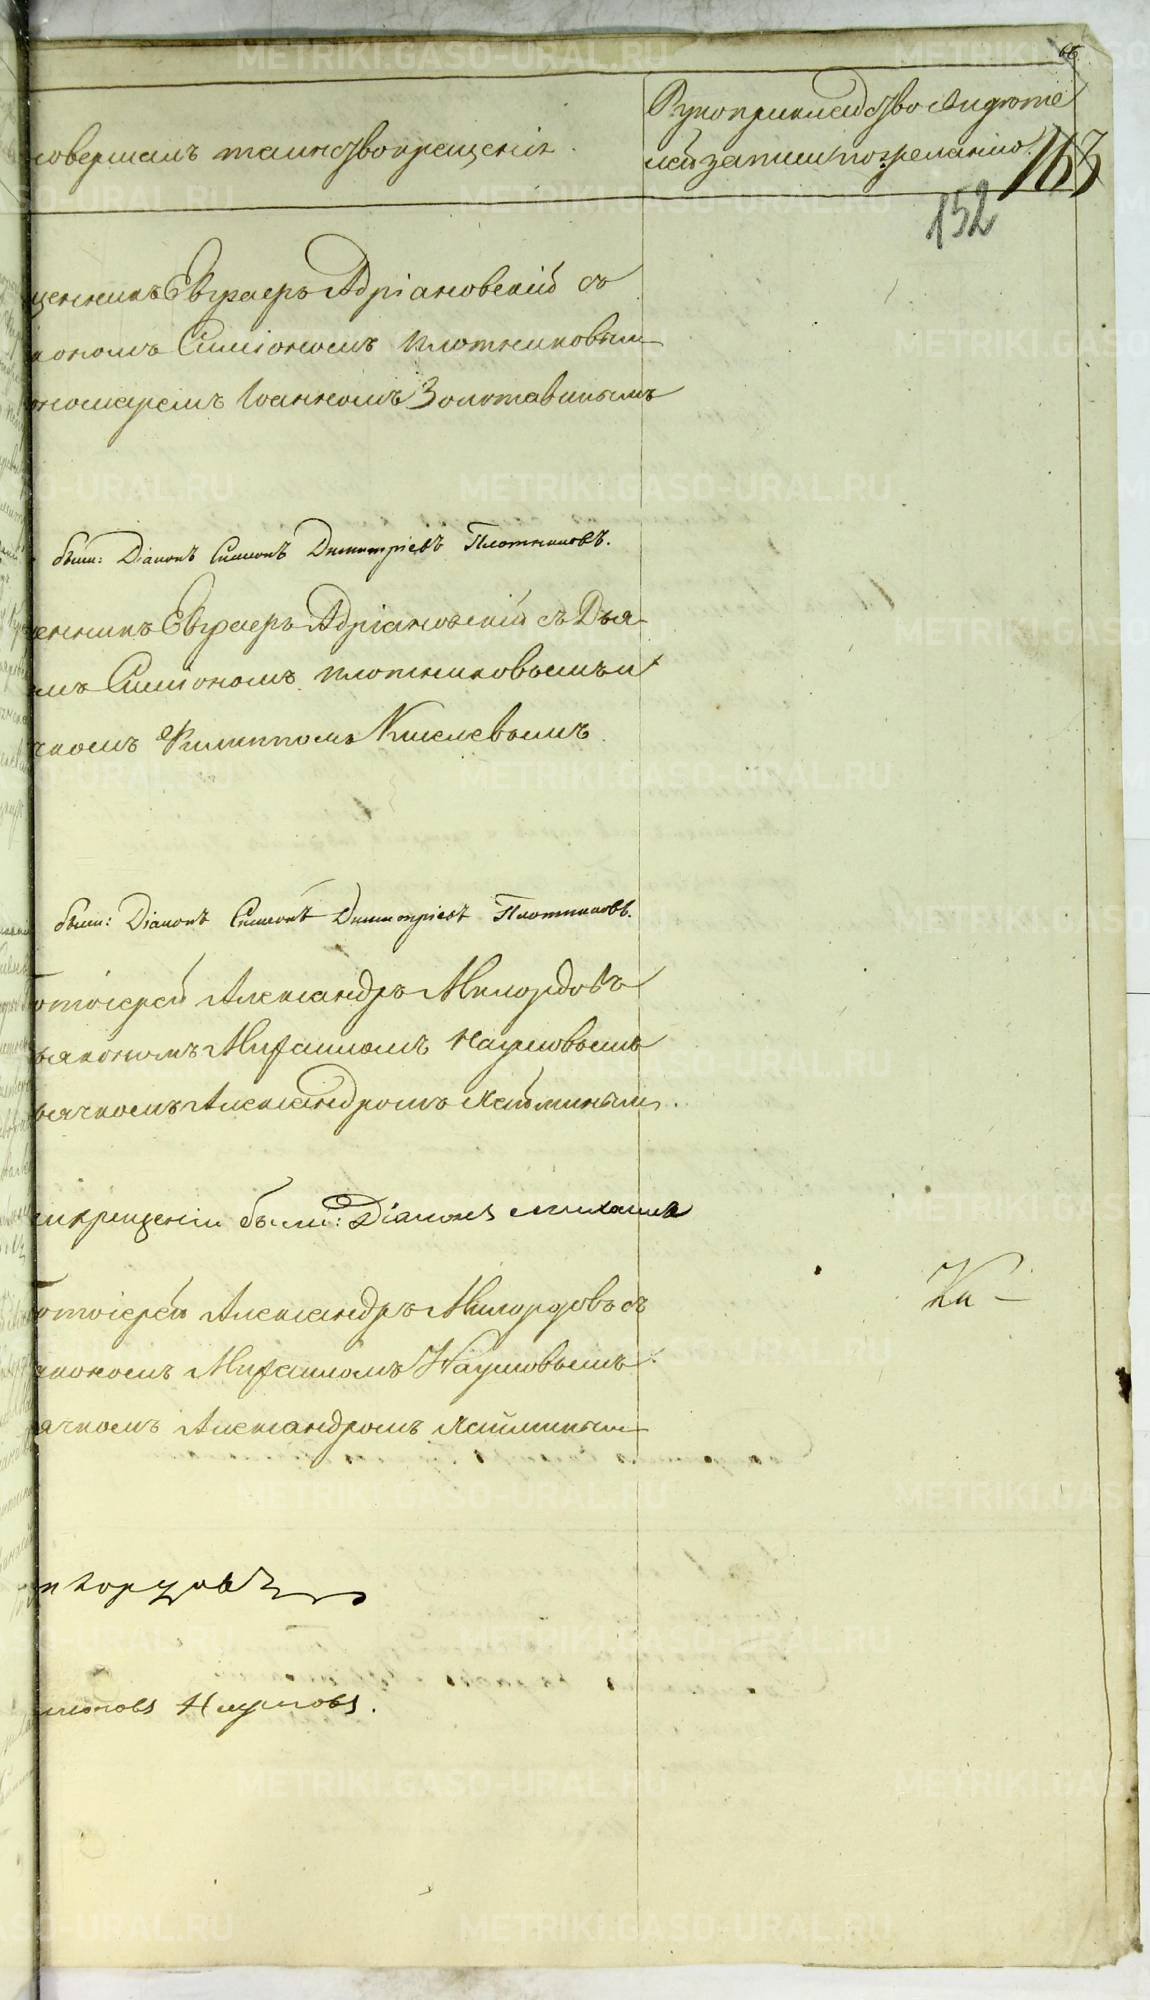 66
совершалъ таинство крещенiя.
Рукоприкладство свидѣте
лей записи по желанiю.
163
152
щенникъ Евграфъ Адрiановскiй съ
кономъ Симiономъ Плотниковым
ономаремъ Iоанномъ Золотавинымъ
были: Дiаконъ Симеонъ Димитрiевъ Плотниковъ.
енникъ Евграфъ Адрiановскiй съ Дья
мъ Симiономъ Плотниковымъ и
чкомъ Филиппомъ Киселевымъ
были: Дiаконъ Симеонъ Димитрiевъ Плотниковъ.
отоiерей Александръ Милордовъ
ьякономъ Михаиломъ Наумовымъ
ьячкомъ Александромъ Хайминым.
и крещенiи были: Дiаконъ Михаилъ
отоiерей Александръ Милордовъ съ
якономъ Михаиломъ Наумовымъ
ячкомъ Александромъ Хайминым
Наумовъ.
METRIKI.GASO-URAL.RU